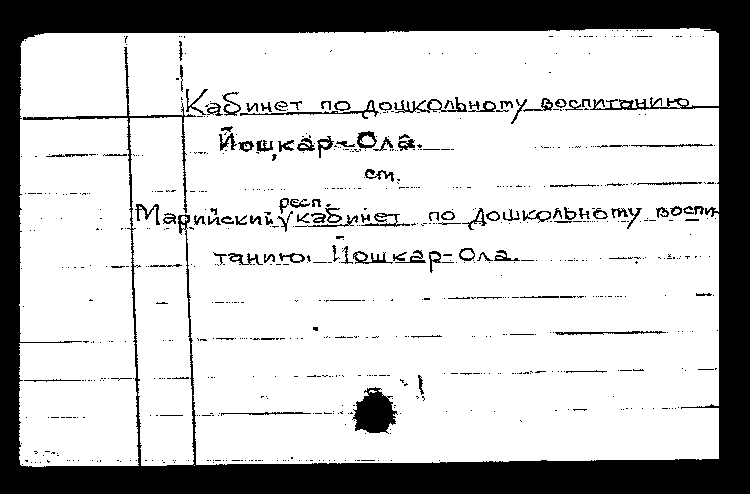 Кабинет по дошкольному воспитанию
Йошкар-Ола.
см.
респ.
Марийский √ кабинет по дошкольному воспи-
танию. Йошкар-Ола.